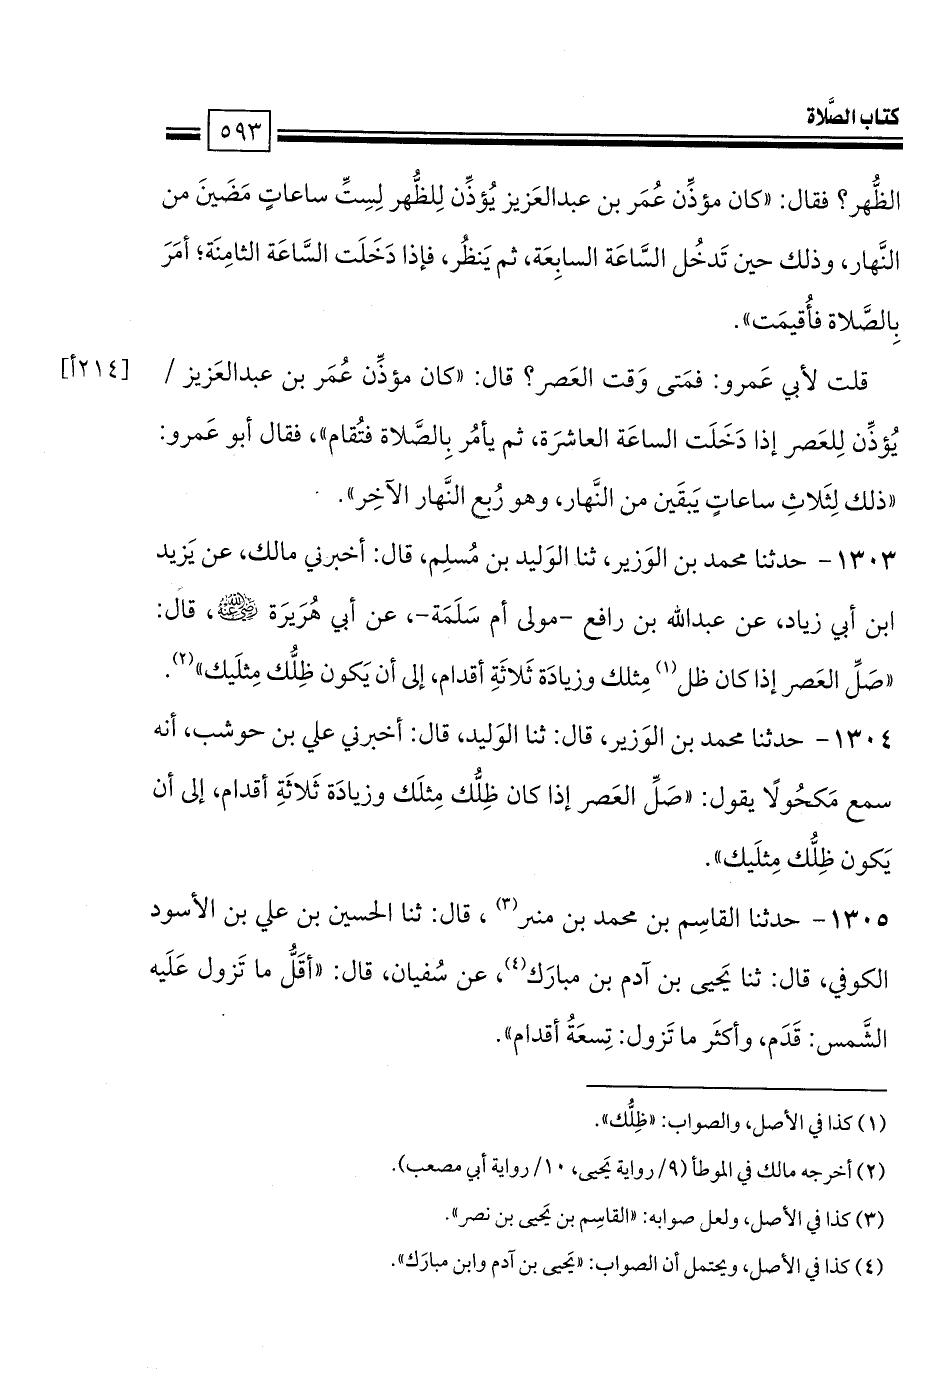 كتاب الصَّلاة
٥٩٣
الظُّهر؟ فقال: «كان مؤذِّن عُمَر بن عبدالعَزيز يُؤذِّن لِلظُّهر لِسِتِّ ساعاتٍ مَضَينَ من
النَّهار، وذلك حين تَدخُل السَّاعَة السابِعَة، ثم يَنظُر، فإذا دَخَلَت السَّاعَة الثامِنَة؛ أمَرَ
بِالصَّلاة فأُقيمَت».
قلت لأبي عَمرو: فمَتى وَقت العَصر؟ قال: «كان مؤذِّن عُمَر بن عبدالعَزيز / [٢١٤أ]
يُؤذِّن لِلعَصر إذا دَخَلَت الساعَة العاشرَة، ثم يأمُر بِالصَّلاة فتُقام»، فقال أبو عَمرو:
«ذلك لِثَلاثِ ساعاتٍ يَبقَين من النَّهار، وهو رُبع النَّهار الآخِر».
١٣٠٣- حدثنا محمد بن الوَزير، ثنا الوَليد بن مُسلِم، قال: أخبرني مالك، عن يَزيد
ابن أبي زياد، عن عبدالله بن رافع -مولى أم سَلَمَة-، عن أبي هُرَيرَة رضي الله عنه، قال:
«صَلِّ العَصر إذا كان ظل(١) مِثلك وزيادَة ثَلاثَةِ أقدام، إلى أن يَكون ظِلُّك مِثلَيك»(٢).
١٣٠٤- حدثنا محمد بن الوَزير، قال: ثنا الوَليد، قال: أخبرني علي بن حوشب، أنه
سمع مَكحُولًا يقول: «صَلِّ العَصر إذا كان ظِلُّك مِثلَك وزيادَة ثَلاثَةِ أقدام، إلى أن
يَكون ظِلُّك مِثلَيك».
١٣٠٥- حدثنا القاسِم بن محمد بن منبر(٣)، قال: ثنا الحسين بن علي بن الأسود
الكوفي، قال: ثنا يَحيى بن آدم بن مبارَك(٤)، عن سُفيان، قال: «أقَلُّ ما تَزول عَلَيه
الشَّمس: قَدَم، وأكثَر ما تَزول: تِسعَةُ أقدام».
(١) كذا في الأصل، والصواب: «ظِلُّك».
(٢) أخرجه مالك في الموطأ (٩/ رواية يَحيى، ١٠/ رواية أبي مصعب).
(٣) كذا في الأصل، ولعل صوابه: «القاسِم بن يَحيى بن نصر».
(٤) كذا في الأصل، ويحتمل أن الصواب: «يَحيى بن آدم وابن مبارَك».